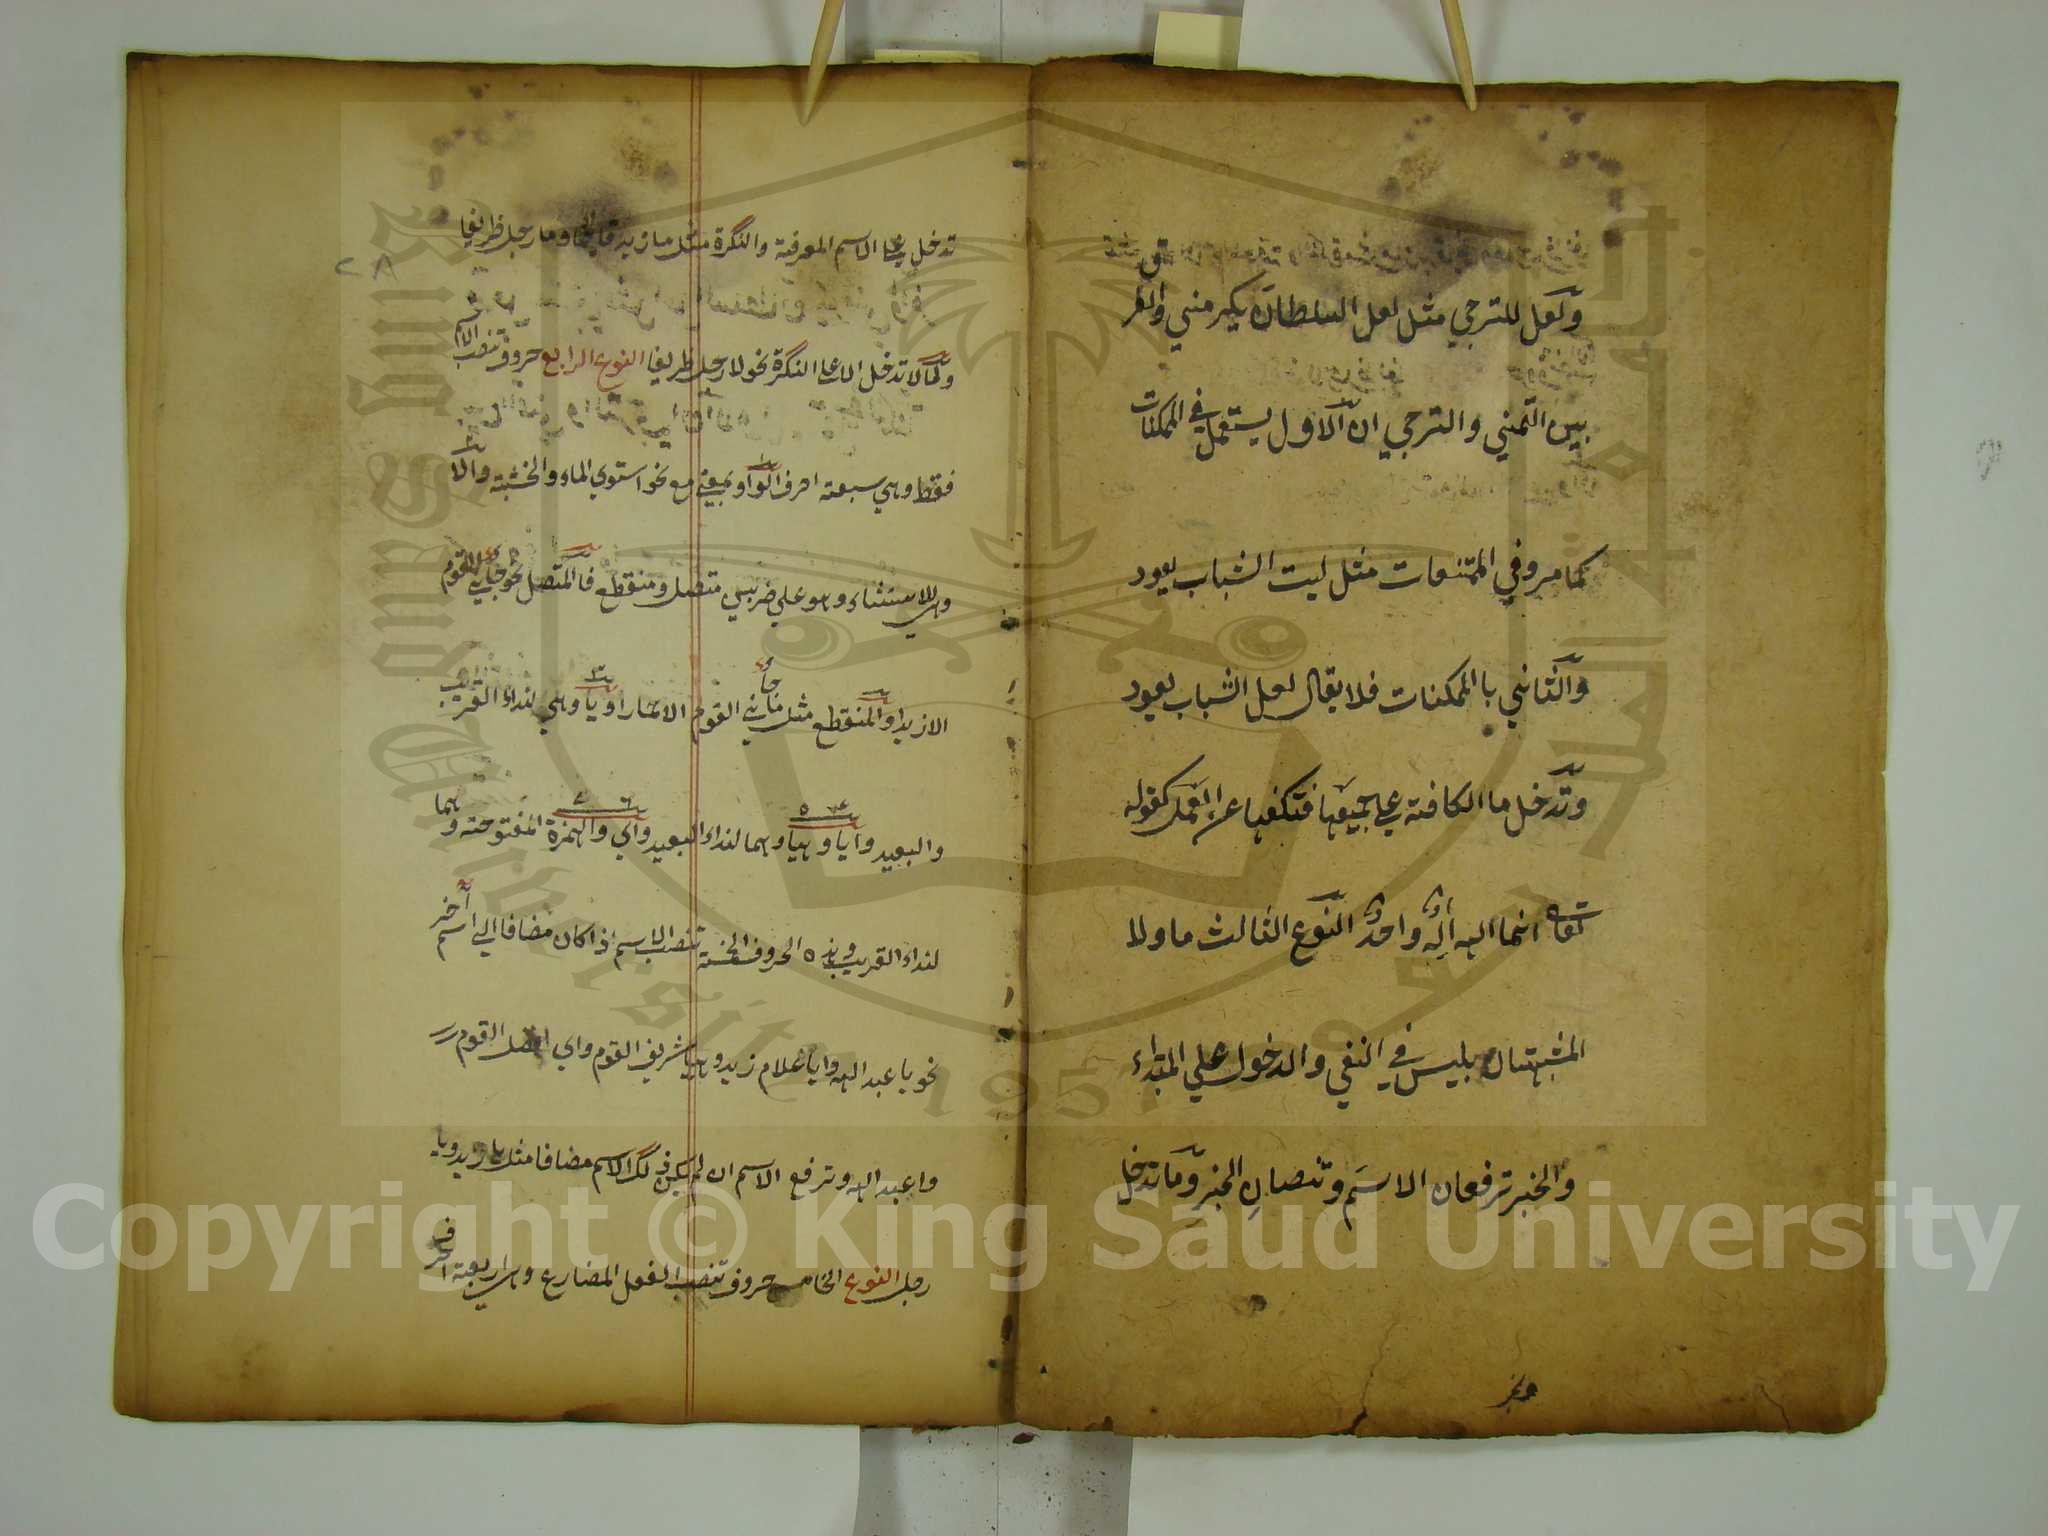 ولعل للترجي مثل لعل السلطان يكرمني والفرق
بين التمني والترجي ان الاول يستعمل في الممكنات
كما مر وفي الممتنعات مثل ليت الشباب يعود
والثاني با الممكنات فلا يقال لعل الشباب يعود
وتدخل ما الكافة علي جميعها فتكفها عن العمل كقوله
تعالى انما الهه اله واحد النوع الثالث ما ولا
المشبهتان بليس في النفي والدخول علي المبتداء
والخبر ترفعان الاسم وتنصبان الخبر وما تدخل
تدخل على الاسم المعرفة والنكرة مثل ما زيد قايما وما رجل ظريفا
ولا تدخل الا على النكرة نحو لا رجل ظريفا النوع الرابع حروف تنصب الاسم
فقط وهي سبعة احرف الواو بمعنى مع نحو استوي الماء والخشبة والا
وهي للاستثناء وهو علي ضربين متصل ومنقطع فالمتصل نحو جاءني القوم
الا زيدا والمنقطع مثل ما جاءني القوم الا حمارا ويا وهي لنداء القريب
والبعيد وايا وهيا وهما لنداء البعيد واي والهمزة المفتوحة وهما
لنداء القريب وهذه الحروف الخمسة تنصب الاسم اذا كان مضافا الي اسم آخر
نحو يا عبد الله وايا غلام زيد وهيا شريف القوم واي افضل القوم
وا عبد الله وترفع الاسم ان لم يكن ذلك الاسم مضافا مثل يا زيد ويا
رجل النوع الخامس حروف تنصب الفعل المضارع وهي اربعة احرف
Copyright © King Saud University